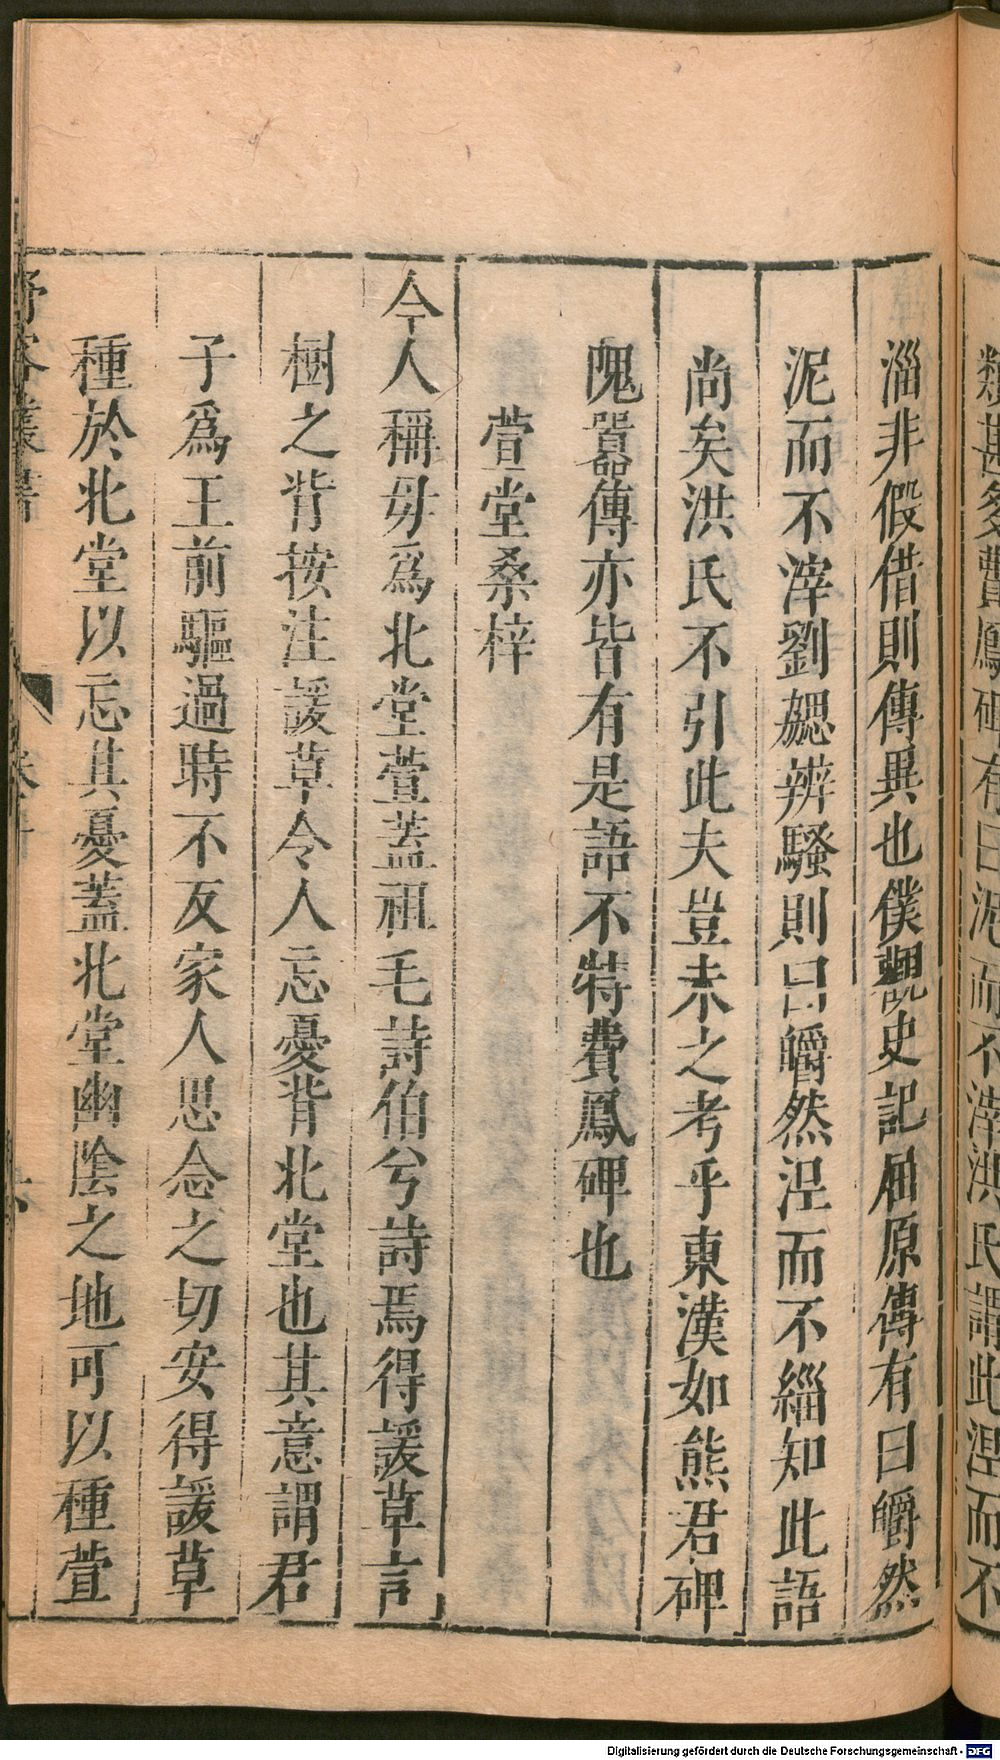 類甚多費鳳碑有曰泥而不滓洪氏謂此涅而不
淄非假借則傳異也僕觀史記屈原傳有曰皭然
泥而不滓劉勰辨騷則曰皭然涅而不緇知此語
尚矣洪氏不引此夫豈未之考乎東漢如熊君碑
隗囂傳亦皆有是語不特費鳳碑也
萱堂桑梓
今人稱母爲北堂萱蓋祖毛詩伯兮詩焉得諼草言
樹之背按注諼草令人忘憂背北堂也其意謂君
子爲王前驅過時不反家人思念之切安得諼草
種於北堂以忘其憂蓋北堂幽陰之地可以種萱
野客叢書
Digitalisierung gefördert durch die Deutsche Forschungsgemeinschaft - DFG